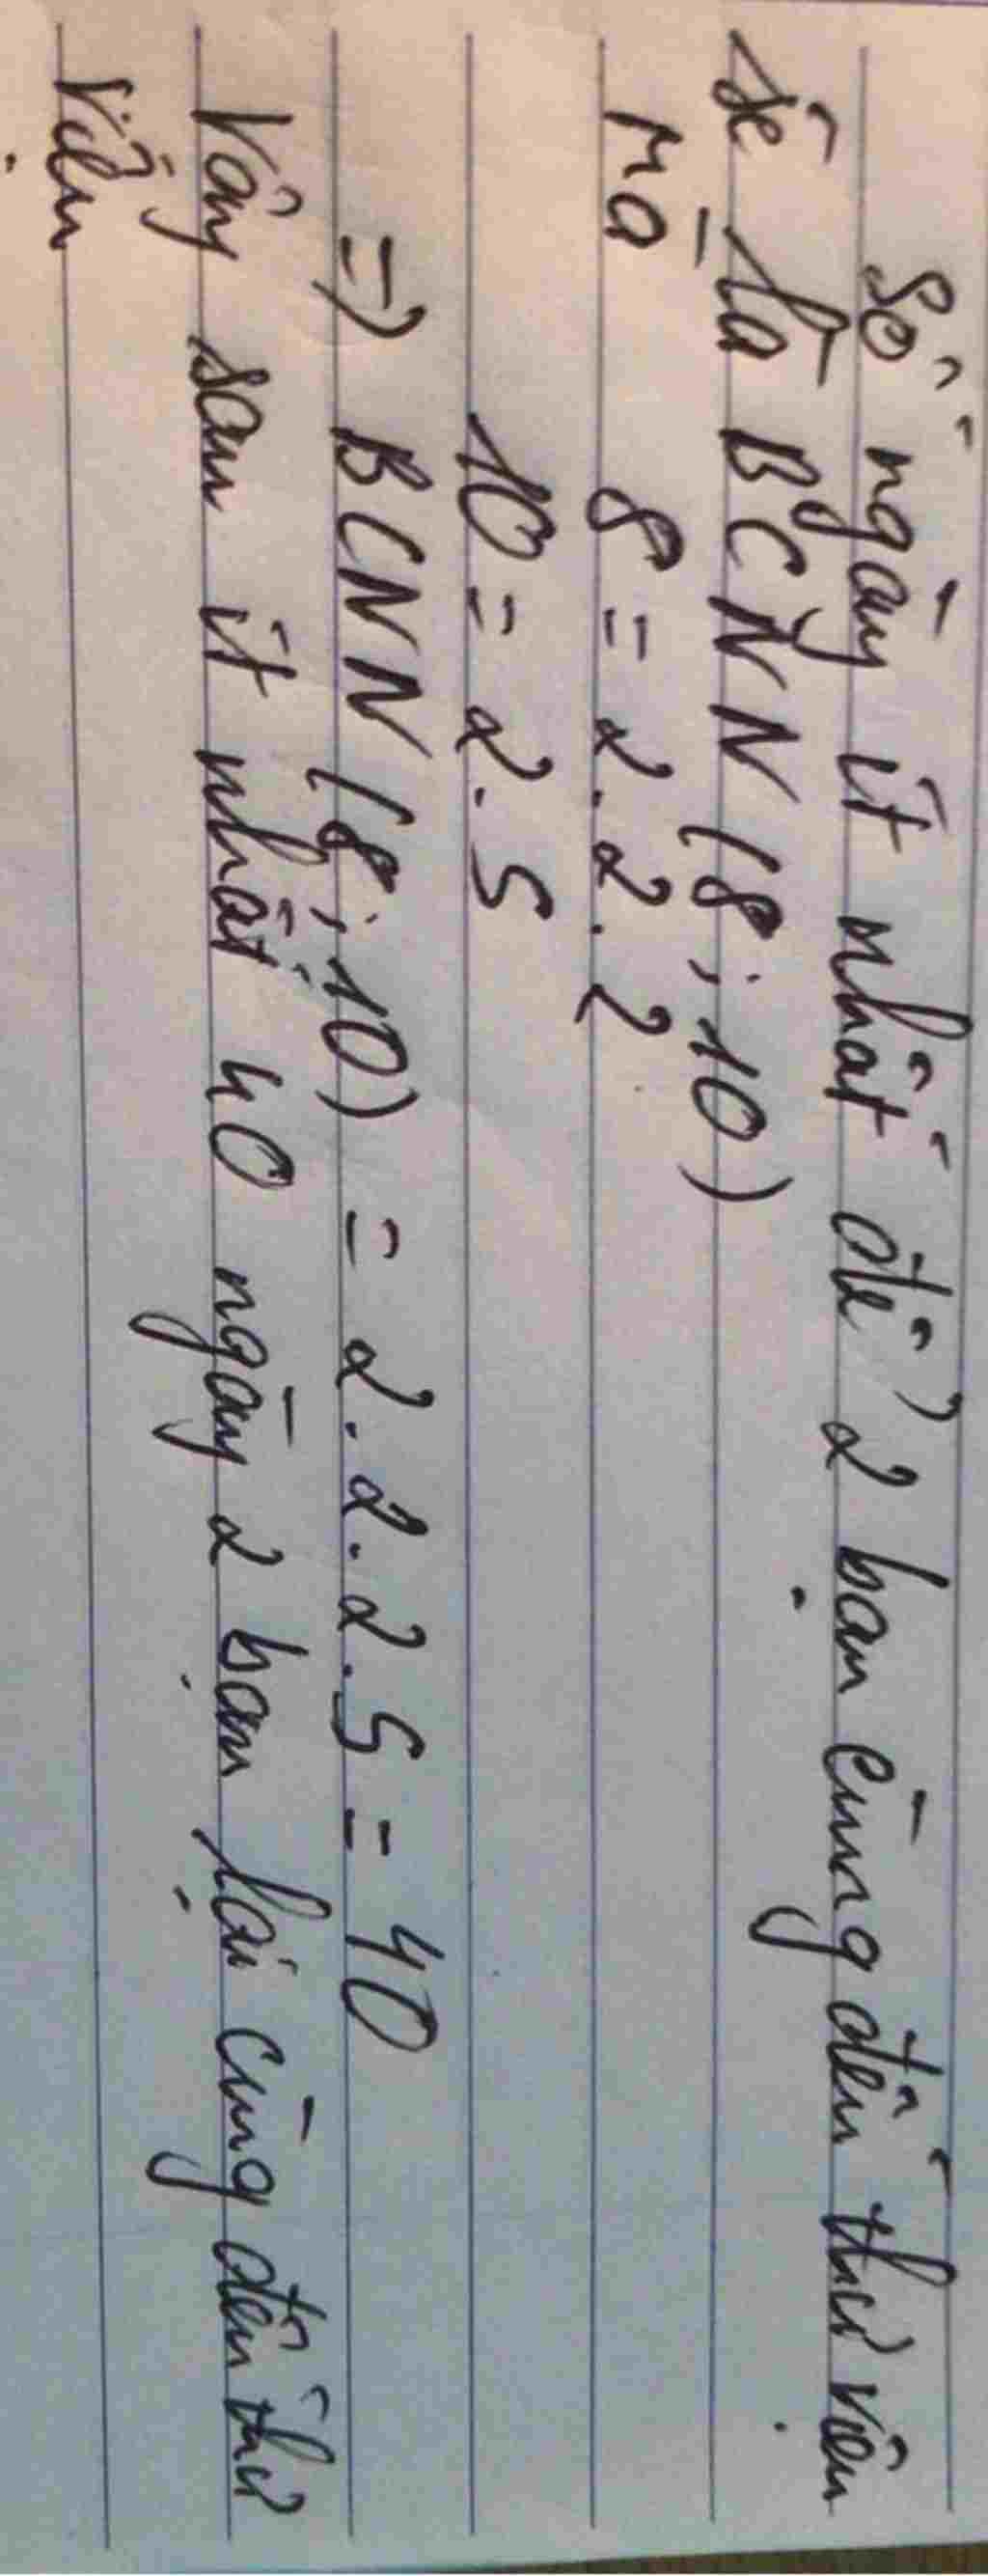 Số ngày ít nhất để 2 bạn cùng đến thư viện
sẽ là BCNN (8; 10)
Mà 8 = 2.2.2
10 = 2.5
=) BCNN (8; 10) = 2.2.2.5 = 40
Vậy sau ít nhất 40 ngày 2 bạn lại cùng đến thư
viện